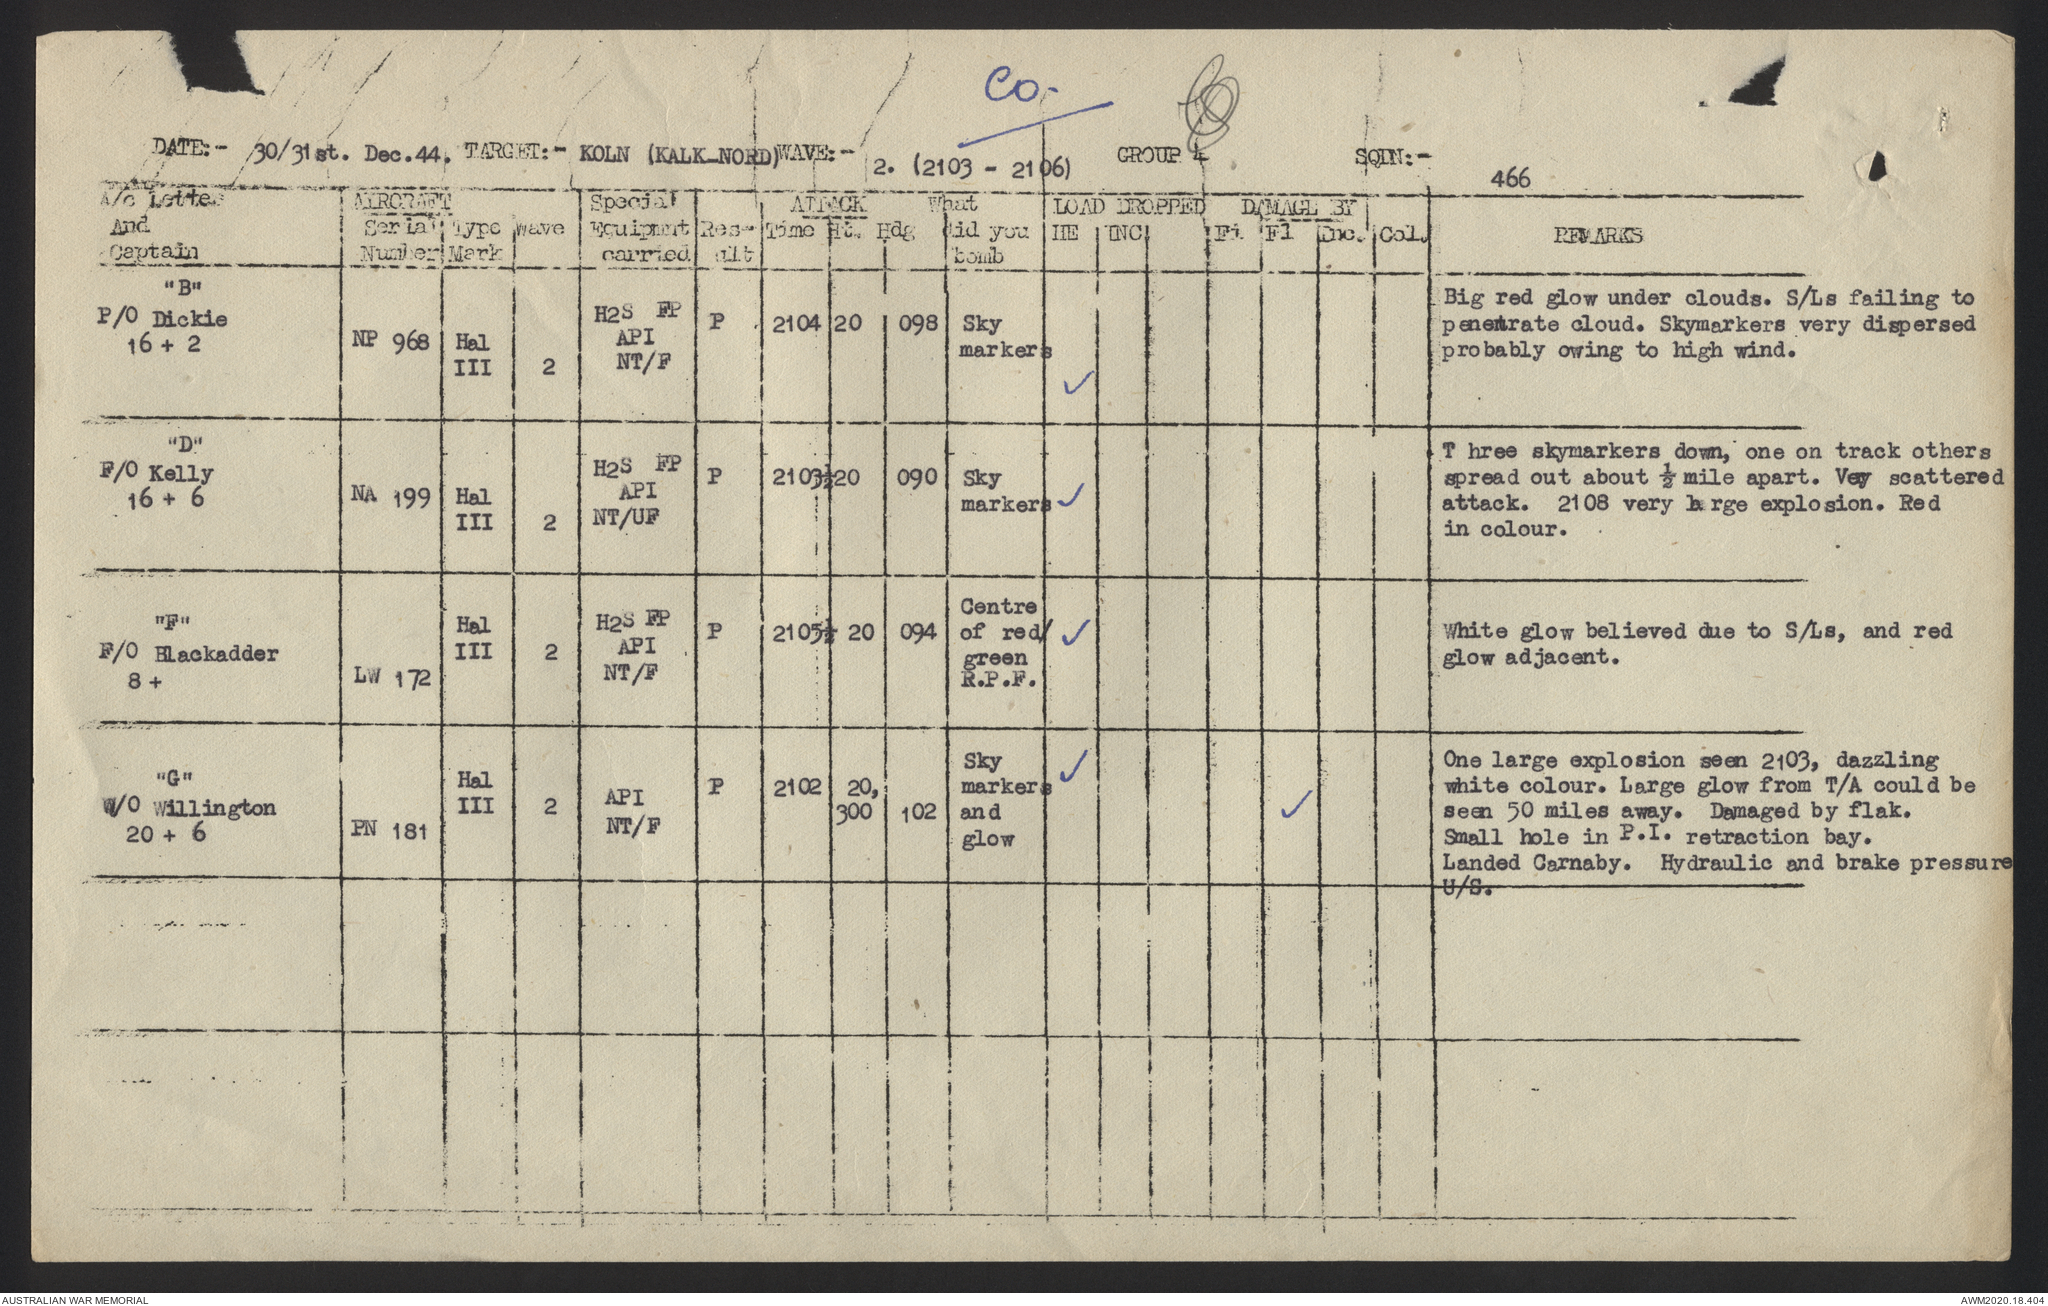 Co.
DATE:- 30/31st. Dec.44. TARGET:- KOLN (KALK-NORD) WAVE:- 2. (2103 - 2106) GROUP 4 SQDN:- 466
A/c Letter And Captain
AIRCRAFT Serial Number Type Mark Wave
Special Equipment carried
Res-ult
ATTACK Time Ht. Hdg
What did you bomb
LOAD DROPPED HE INC
DAMAGE BY Fi Fl Inc. Col.
REMARKS
"B"
P/O Dickie
16 + 2
NP 968
Hal
III
2
H2S FP
API
NT/F
P
2104
20
098
Sky
markers
✓
Big red glow under clouds. S/Ls failing to
penetrate cloud. Skymarkers very dispersed
probably owing to high wind.
"D"
F/O Kelly
16 + 6
NA 199
Hal
III
2
H2S FP
API
NT/UF
P
2103½
20
090
Sky
markers
✓
T hree skymarkers down, one on track others
spread out about ½ mile apart. Vey scattered
attack. 2108 very large explosion. Red
in colour.
"F"
F/O Blackadder
8 +
LW 172
Hal
III
2
H2S FP
API
NT/F
P
2105½
20
094
Centre
of red/
green
R.P.F.
✓
White glow believed due to S/Ls, and red
glow adjacent.
"G"
W/O Willington
20 + 6
PN 181
Hal
III
2
API
NT/F
P
2102
20,
300
102
Sky
markers
and
glow
✓
✓
One large explosion seen 2103, dazzling
white colour. Large glow from T/A could be
seen 50 miles away. Damaged by flak.
Small hole in P.I. retraction bay.
Landed Carnaby. Hydraulic and brake pressure
U/S.
AUSTRALIAN WAR MEMORIAL
AWM2020.18.404